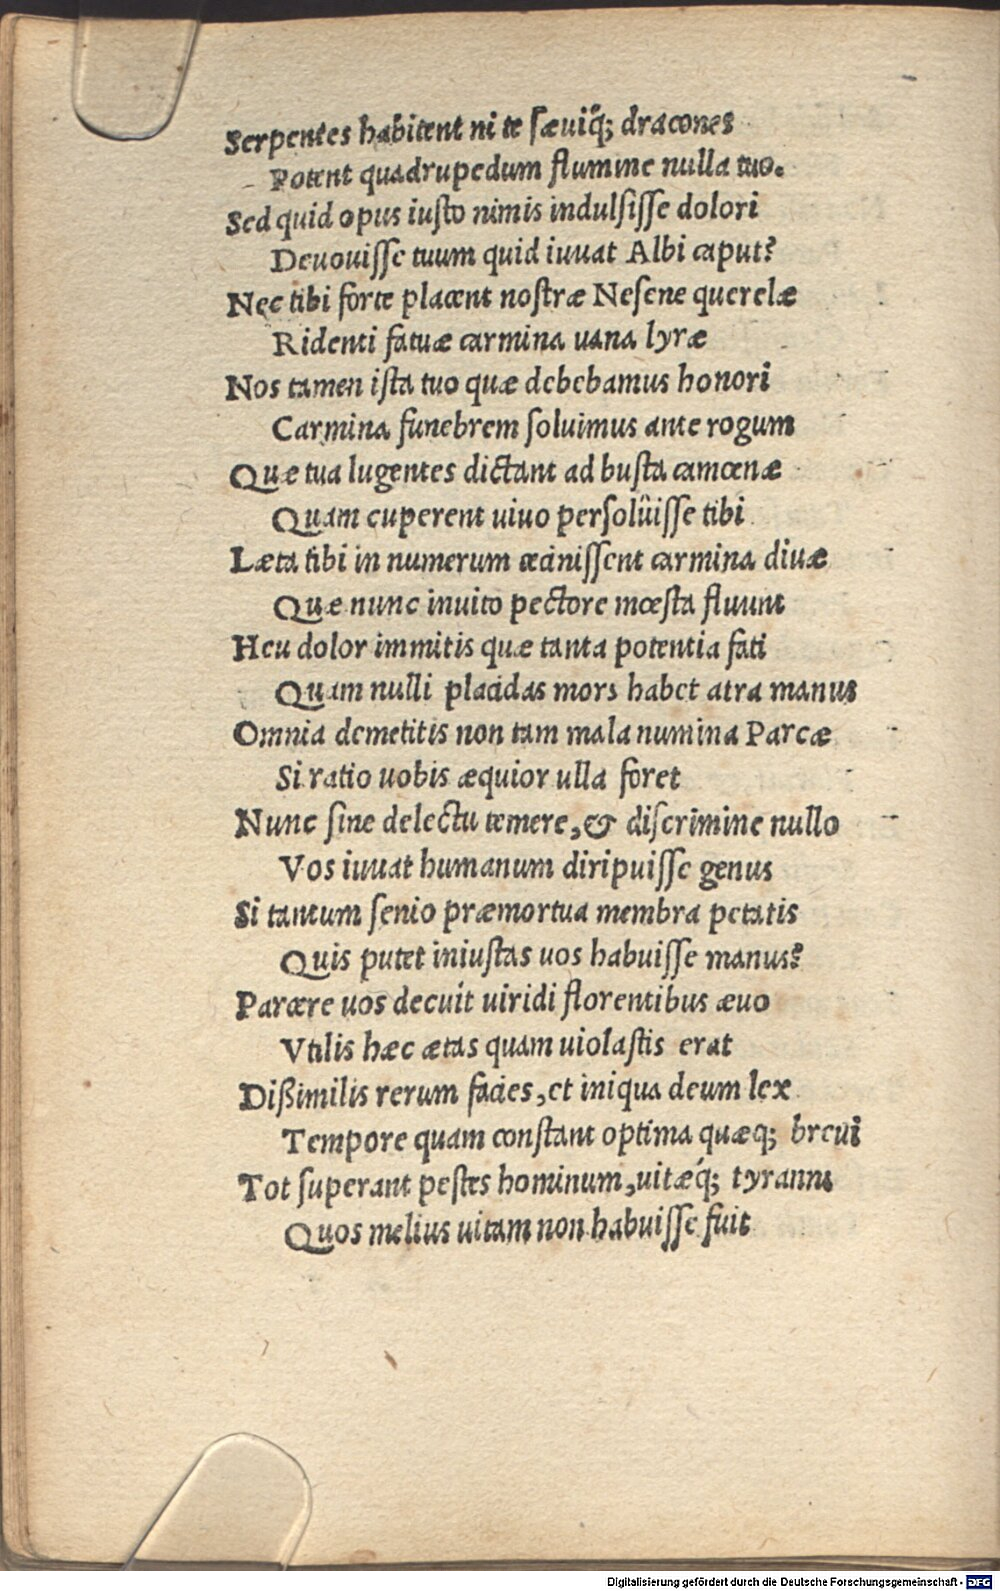 Serpentes habitent ni te sæuiq́; dracones
Potent quadrupedum flumine nulla tuo.
Sed quid opus iusto nimis indulsisse dolori
Deuouisse tuum quid iuuat Albi caput?
Nec tibi forte placent nostræ Nesene querelæ
Ridenti fatuæ carmina uana lyræ
Nos tamen ista tuo quæ debebamus honori
Carmina funebrem soluimus ante rogum
Quæ tua lugentes dictant ad busta camœnæ
Quam cuperent uiuo persolüisse tibi
Læta tibi in numerum cecinissent carmina diuæ
Quæ nunc inuito pectore mœsta fluunt
Heu dolor immitis quæ tanta potentia fati
Quam nulli placidas mors habet atra manus
Omnia demetitis non tam mala numina Parcæ
Si ratio uobis æquior ulla foret
Nunc sine delectu temere, & discrimine nullo
Vos iuuat humanum diripuisse genus
Si tantum senio præmortua membra petatis
Quis putet iniustas uos habuisse manus?
Parcere uos decuit uiridi florentibus æuo
Vtilis hæc ætas quam uiolastis erat
Dißimilis rerum facies, et iniqua deum lex
Tempore quam constant optima quæq; breui
Tot superant pestes hominum, uitæq́; tyranni
Quos melius uitam non habuisse fuit
Digitalisierung gefördert durch die Deutsche Forschungsgemeinschaft - DFG